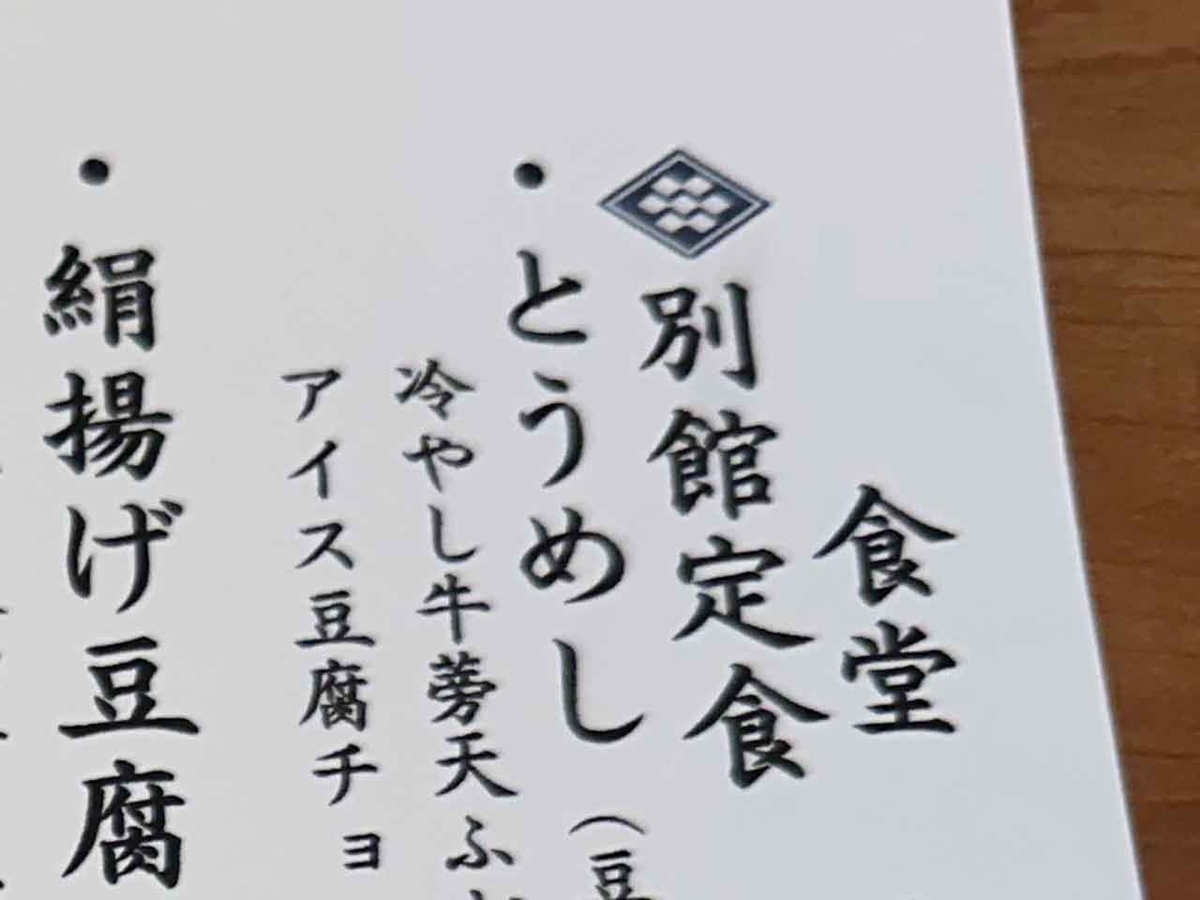 食堂
別館定食
・とうめし（豆
冷やし牛蒡天ふ
アイス豆腐チョ
・絹揚げ豆腐